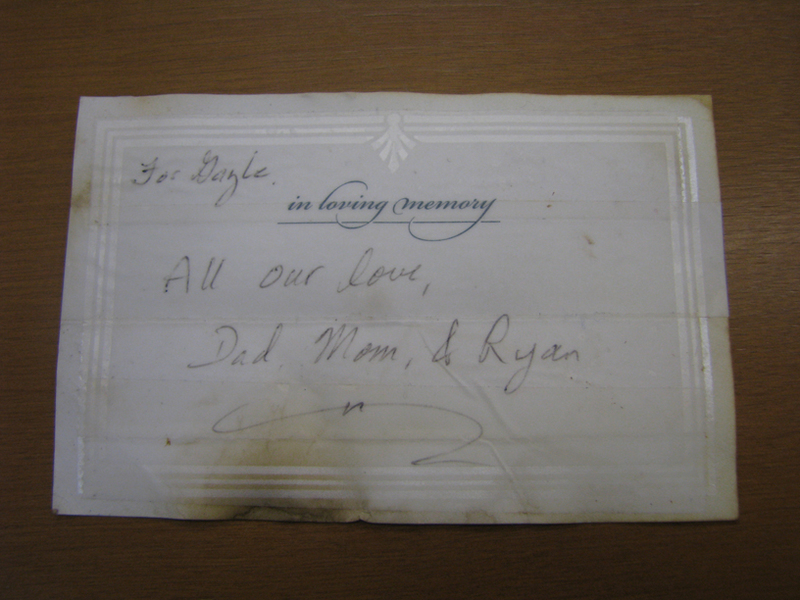 For Gayle.
in loving memory
All our love,
Dad, Mom, & Ryan